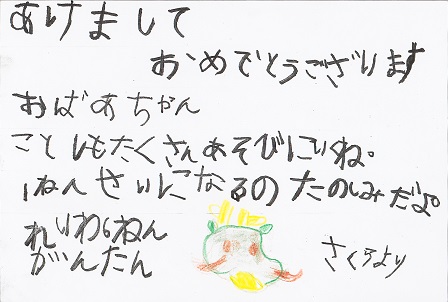 あけまして
おめでとうございます
おばあちゃん
ことしもたくさんあそびにいくね。
1ねんせいになるの たのしみだよ。
れいわ6ねん
がんたん
さくらより